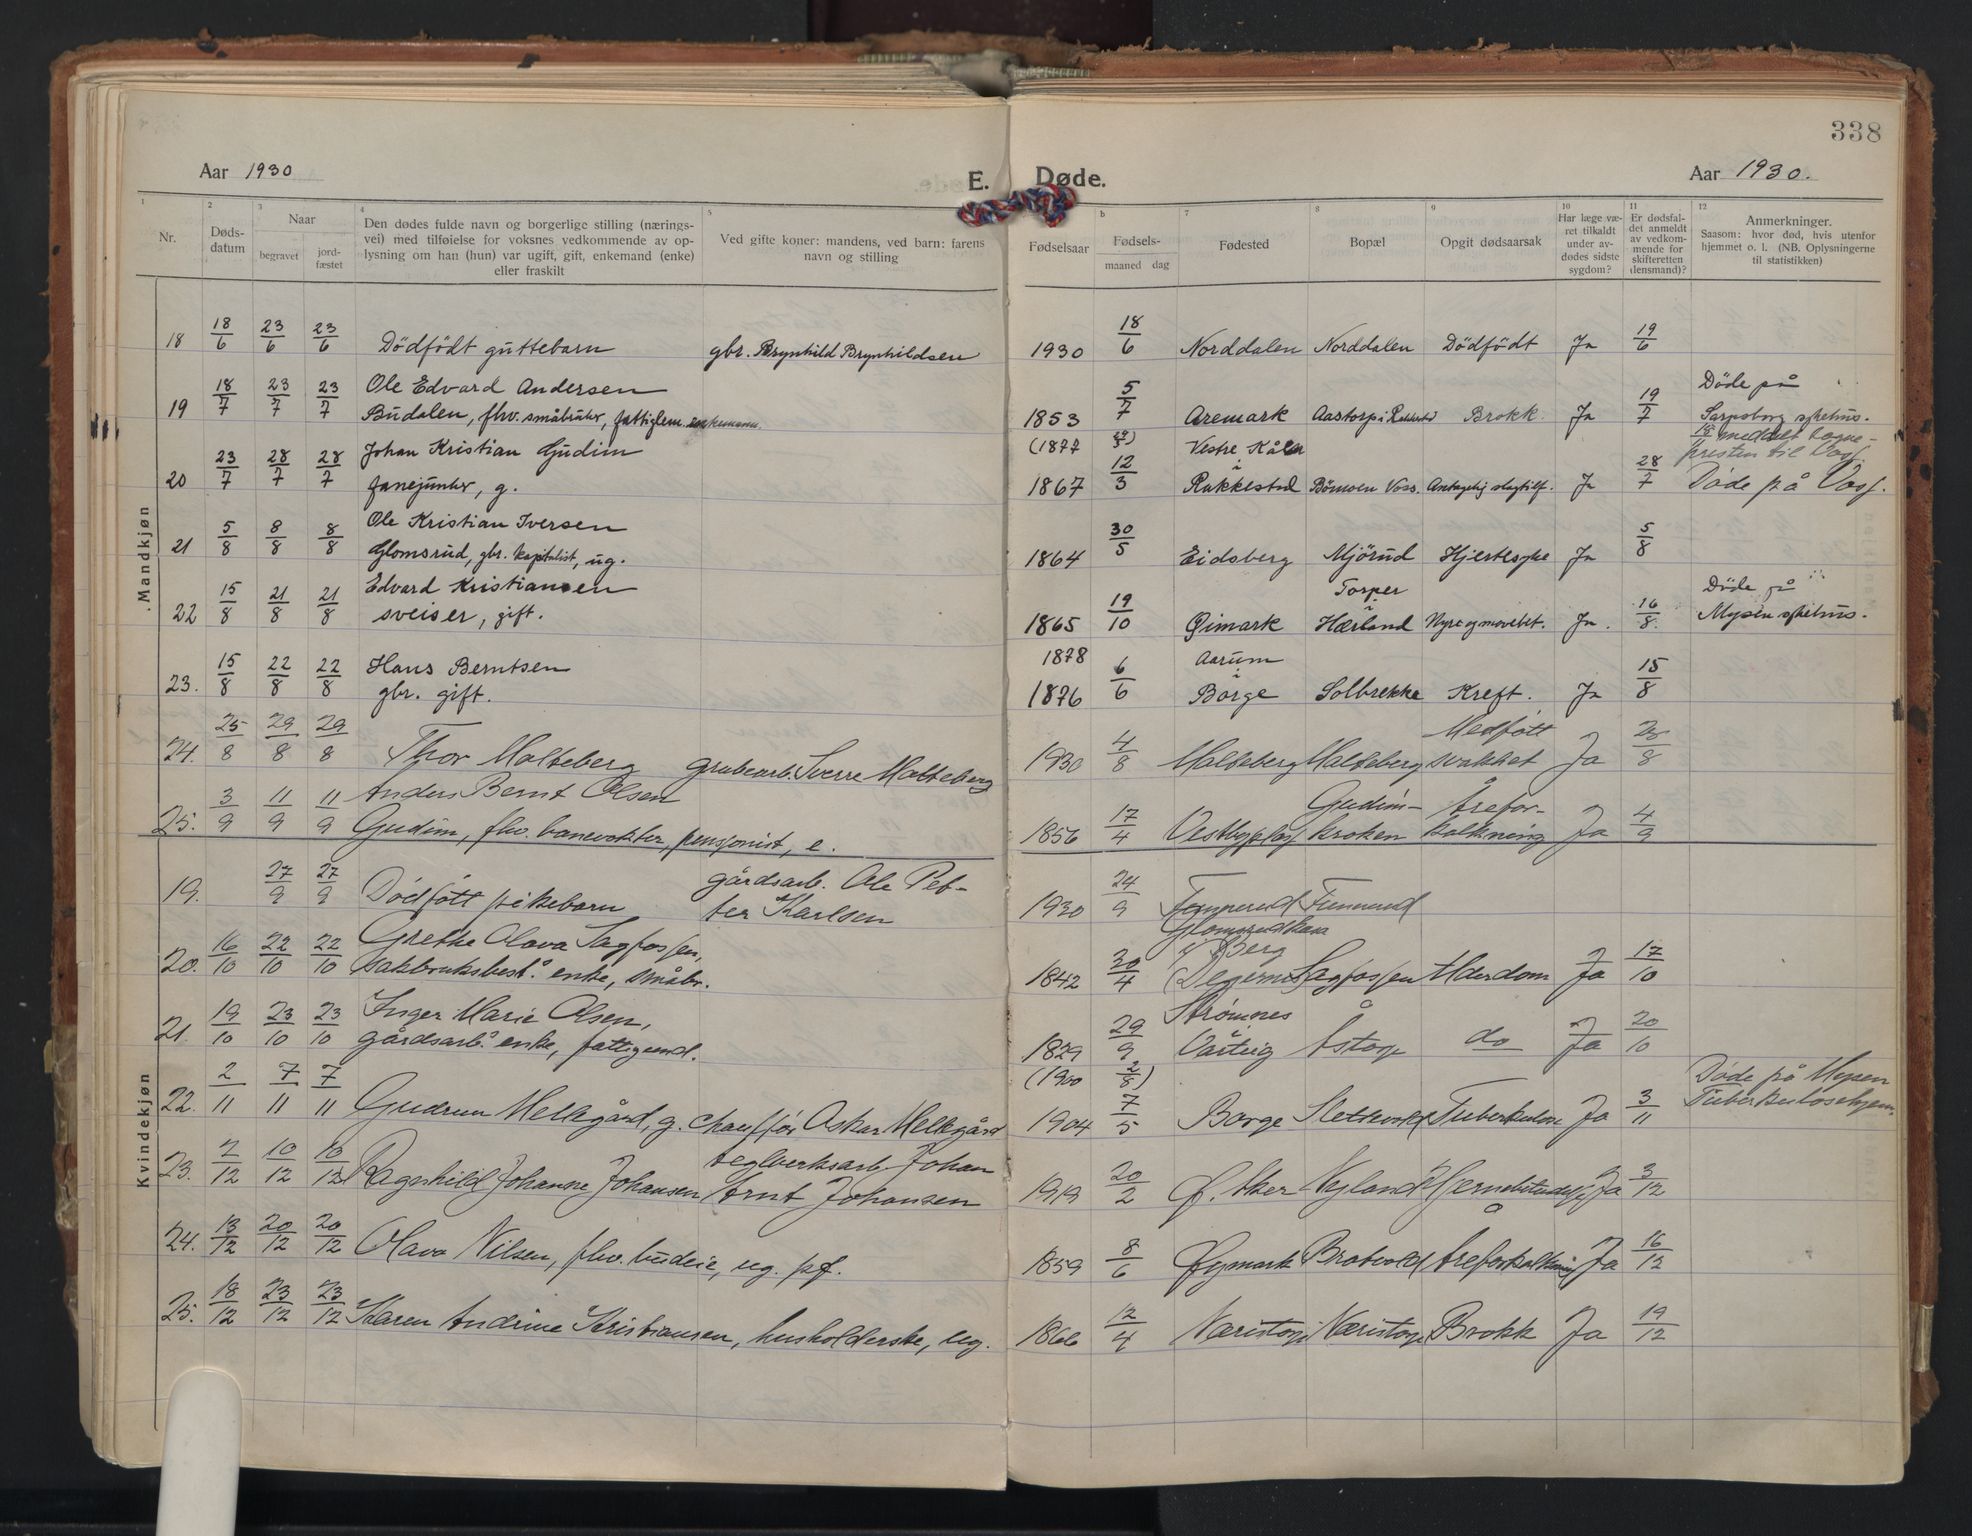 338
Aar 1930
E. Døde.
Aar 1930.
1 2 3 4 5 b 7 8 9 10 11 12
Nr.
Døds-
datum
Naar
begravet
jord-
fæstet
Den dødes fulde navn og borgerlige stilling (nærings-
vei) med tilføielse for voksnes vedkommende av op-
lysning om han (hun) var ugift, gift, enkemand (enke)
eller fraskilt
Ved gifte koner: mandens, ved barn: farens
navn og stilling
Fødselsaar
Fødsels-
maaned dag
Fødested
Bopæl
Opgit dødsaarsak
Har læge væ-
ret tilkaldt
under av-
dødes sidste
sygdom?
Er dødsfal-
det anmeldt
av vedkom-
mende for
skifteretten
(lensmand)?
Anmerkninger.
Saasom: hvor død, hvis utenfor
hjemmet o. l. (NB. Oplysningerne
til statistikken)
Mandkjøn
18 18/6 23/6 23/6 Dödfödt guttebarn gbr. Brynhild Brynhildsen 1930 18/6 Norddalen Norddalen Dödfödt Ja 19/6
Ole Edvard Andersen Döde på
19 18/7 23/7 23/7 Budalen, fhv. småbruker, fattiglem. enkemann. 1853 5/7 Aremark Aastorp i Rakkestad Brokk. Ja 19/7 Sarpsborg sykehus.
Johan Kristian Gudim (1877 Vestre
20 23/7 28/7 28/7 fanejunker, g. 1867 12/3 Rakkestad Bömoen Voss. Antagelig slagtilf. Ja 28/7 Døde på Voss.
Ole Kristian Iversen
21 5/8 8/8 8/8 Glomsrud, gbr. kapitalist, ug. 1864 30/5 Eidsberg Mjörud Hjertesyke Ja 5/8
Edvard Kristiansen Torper Döde på
22 15/8 21/8 21/8 sveiser, gift. 1865 19/10 Øimark i Hærland Nyre og Ja. 16/8. Mysen sykehus.
Hans Berntsen 1878 Aarum
23. 15/8 22/8 22/8 gbr. gift. 1876 6/6 i Borge Solbrekke Kreft. Ja 15/8
Medføtt
24. 25/8 29/8 29/8 Thor Malteberg grubearb. Sverre Malteberg 1930 4/8 Malteberg Malteberg svakhet Ja
Anders Bernt Olsen Gudim- Årefor-
25. 3/9 11/9 11/9 Gudim, fhv. banevokter, pensjonist, e. 1856 17/4 kroken kalkning Ja 4/9
Kvindekjøn
gårdsarb. Ole Pet-
19. 27/9 27/9 Dødføtt pikebarn ter Karlsen 1930 24/9
Grethe Olava Sagfossen, i Berg
20. 16/10 22/10 22/10 sakbruksbest.s enke, småbr. 1842 30/4 Degernes Sagfossen Alderdom Ja 17/10
Inger Marie Olsen, Strømnes
21. 19/10 23/10 23/10 gårdsarb.s enke, fattigund. 1829 29/9 i Varteig Åstorp do Ja 20/10
(1900 2/8) Døde på Mysen
22. 2/11 7/11 7/11 Gudrun Melkgård, g. chauffør Oskar Melkgård 1904 7/5 Borge Tuberkulose Ja 3/11 Tuberkulosehjem.
teglverksarb. Johan
23. 2/12 10/12 10/12 Ragnhild Johanne Johansen Arnt Johansen 1919 20/2 Ø. Aker Nyland Ja 3/12
24. 13/12 20/12 20/12 Olava Nilsen, fhv. budeie, ug. pf. 1859 8/6 Øymark Bratvold Åreforkalkning Ja 16/12
25. 18/12 23/12 23/12 Karen Andrine Kristiansen, husholderske, ug. 1866 12/4 Næristorp Næristorp Brokk Ja 19/12